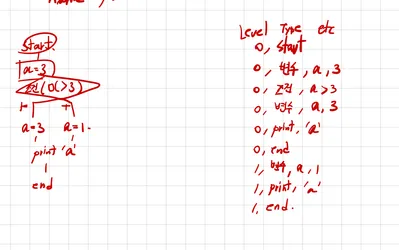 start
a=3
조건(a>3)
F T
a=3 a=1.
print 'a'
end
Level Type etc
0, start
0, 변수, a, 3
0, 조건, a>3
0, 변수, a, 3
0, print, 'a'
0, end
1, 변수, a, 1
1, print, 'a'
1, end.